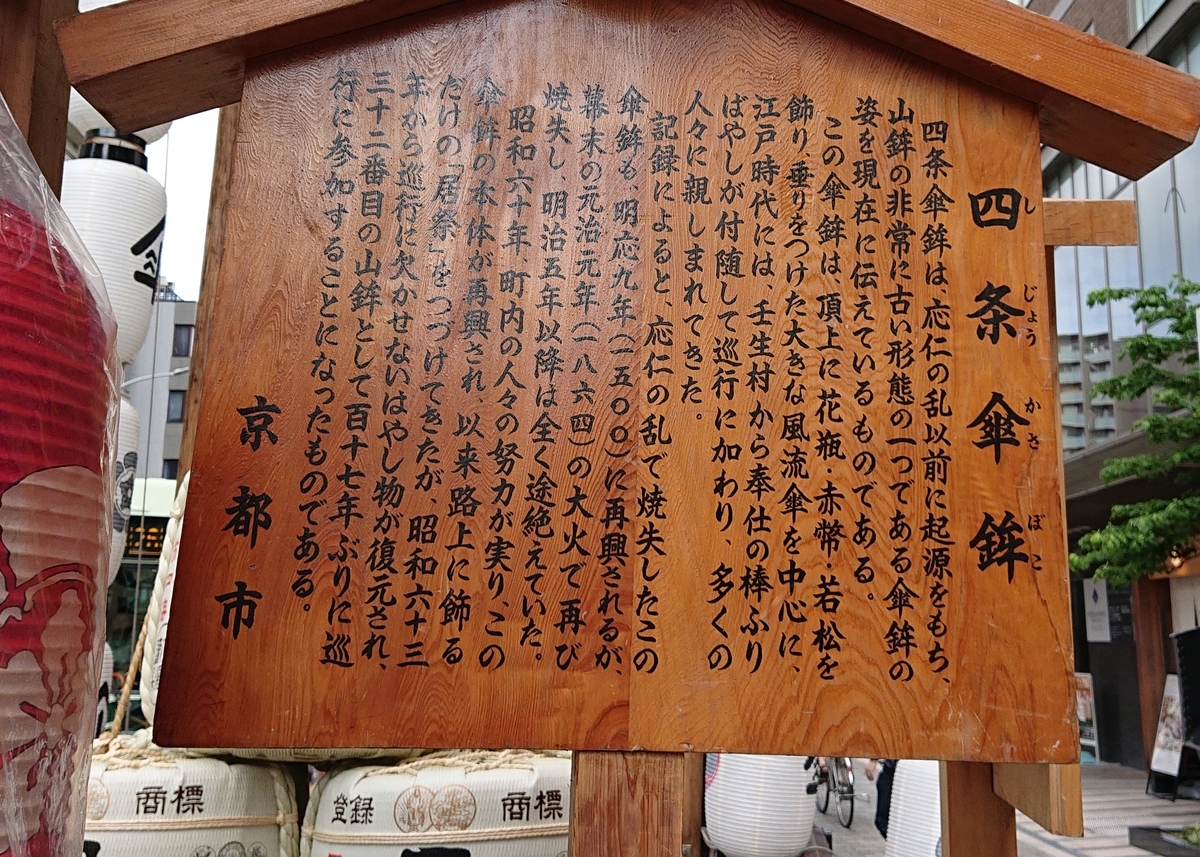 四条傘鉾
し じょう かさ ぼこ
四条傘鉾は、応仁の乱以前に起源をもち、
山鉾の非常に古い形態の一つである傘鉾の
姿を現在に伝えているものである。
この傘鉾は、頂上に花瓶・赤幣・若松を
飾り垂りをつけた大きな風流傘を中心に、
江戸時代には、壬生村から奉仕の棒ふり
ばやしが付随して巡行に加わり、多くの
人々に親しまれてきた。
記録によると、応仁の乱で焼失したこの
傘鉾も、明応九年(一五〇〇)に再興されるが、
幕末の元治元年(一八六四)の大火で再び
焼失し、明治五年以降は全く途絶えていた。
昭和六十年、町内の人々の努力が実り、この
傘鉾の本体が再興され、以来路上に飾る
だけの「居祭」をつづけてきたが、昭和六十三
年から巡行に欠かせないはやし物が復元され、
三十二番目の山鉾として百十七年ぶりに巡
行に参加することになったものである。
京都市
商標
登録
商標